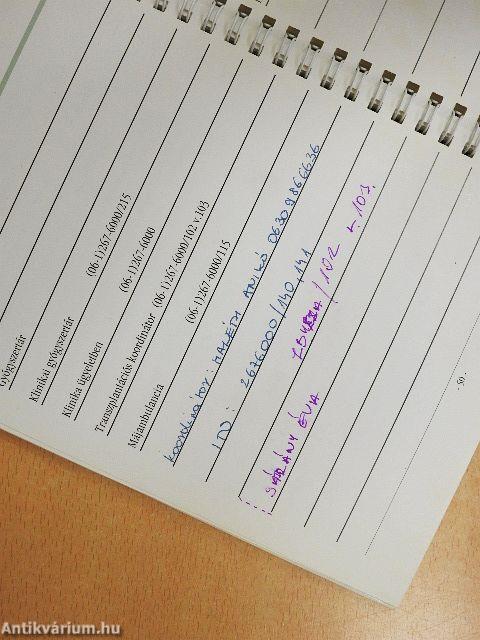 Gyógyszertár
Klinikai gyógyszertár (06-1)267-6000/215
Klinika ügyeletben (06-1)267-6000
Transzplantációs koordinátor (06-1)267-6000/102 v.103
Májambulancia (06-1)267-6000/115
koordinátor: ANIKÓ 06309866636
2676000/140,141
ÉVA /102 103.
- 50 -
Antikvárium.hu